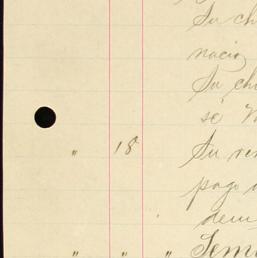 Su ch
nacio
Su ch
se
" 18 Su ren
pago
dem
" " " Semi